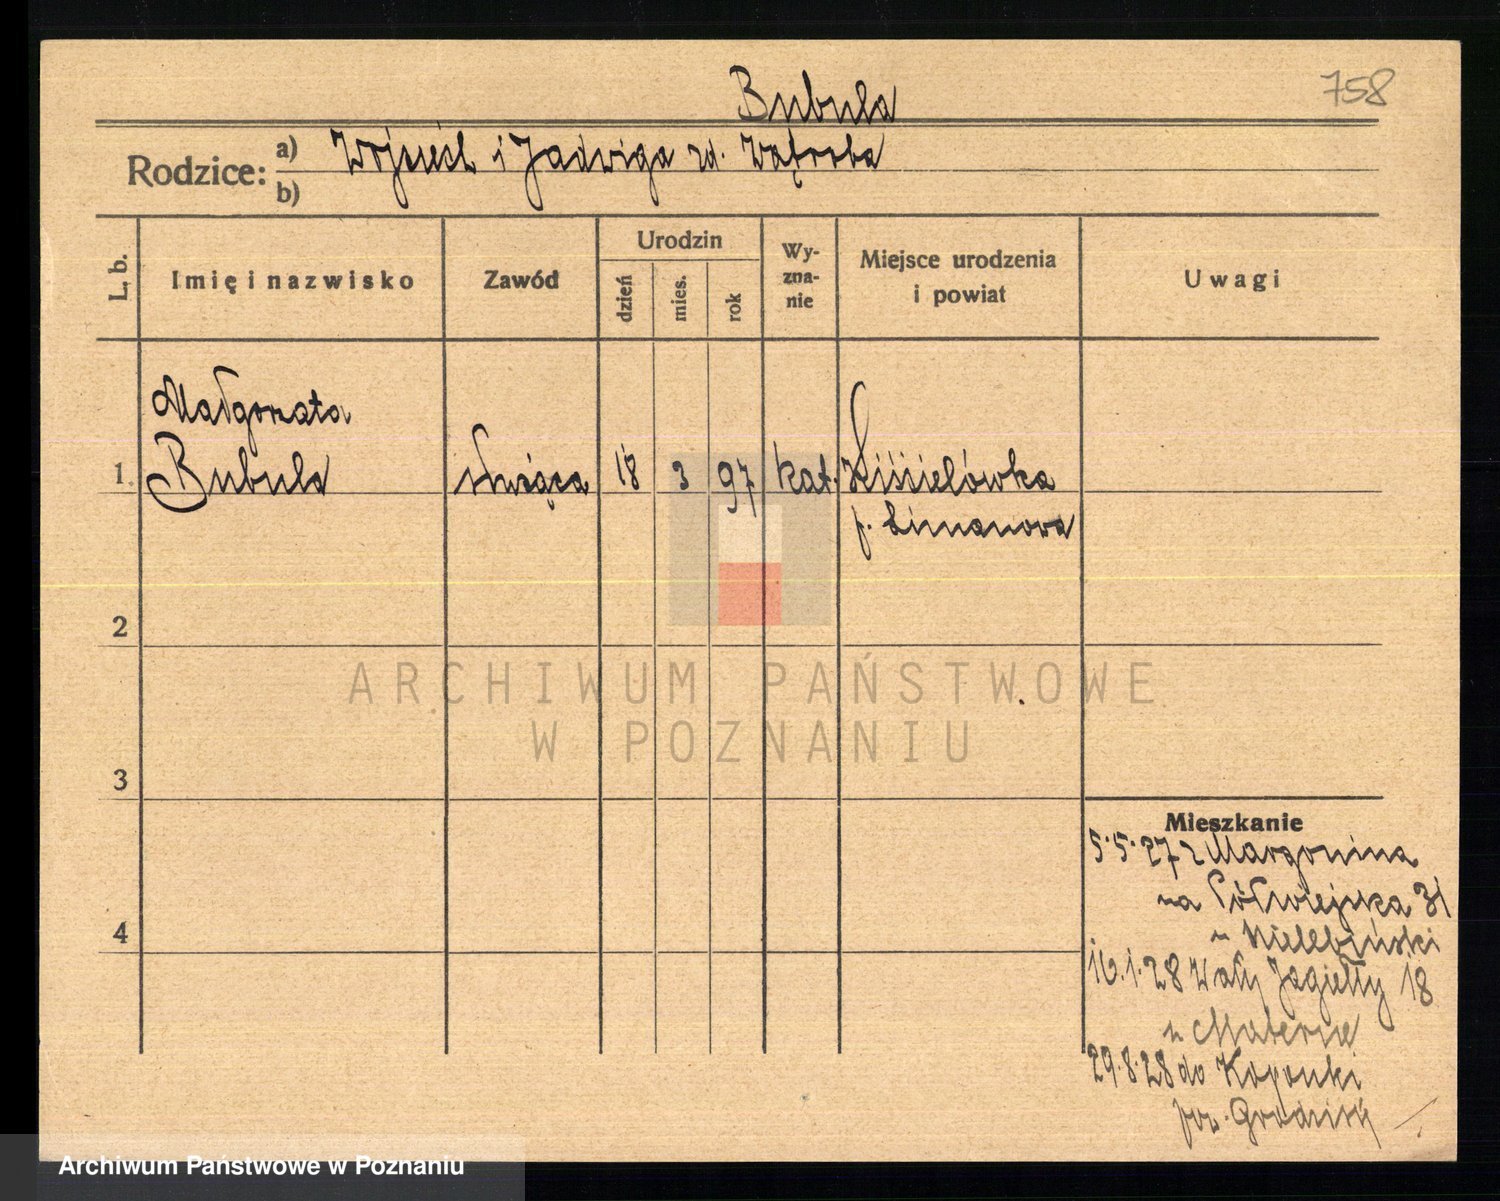 758
Bubula
Rodzice: a) Wojciech i Jadwiga zd. Wątroba
b)
L. b.
Imię i nazwisko
Zawód
Urodzin
dzień
mies.
rok
Wy-
zna-
nie
Miejsce urodzenia
i powiat
Uwagi
Małgorzata
1. Bubula służąca 18 3 97 kat. Kisielówka
p. Limanowa
2
3
4
Mieszkanie
5.5.27 z Margonina
na Półwiejska 31
u
16.1.28 Wały Jagiełły 18
u
29.8.28 do
pow. Grodzisk
ARCHIWUM PAŃSTWOWE
W POZNANIU
Archiwum Państwowe w Poznaniu